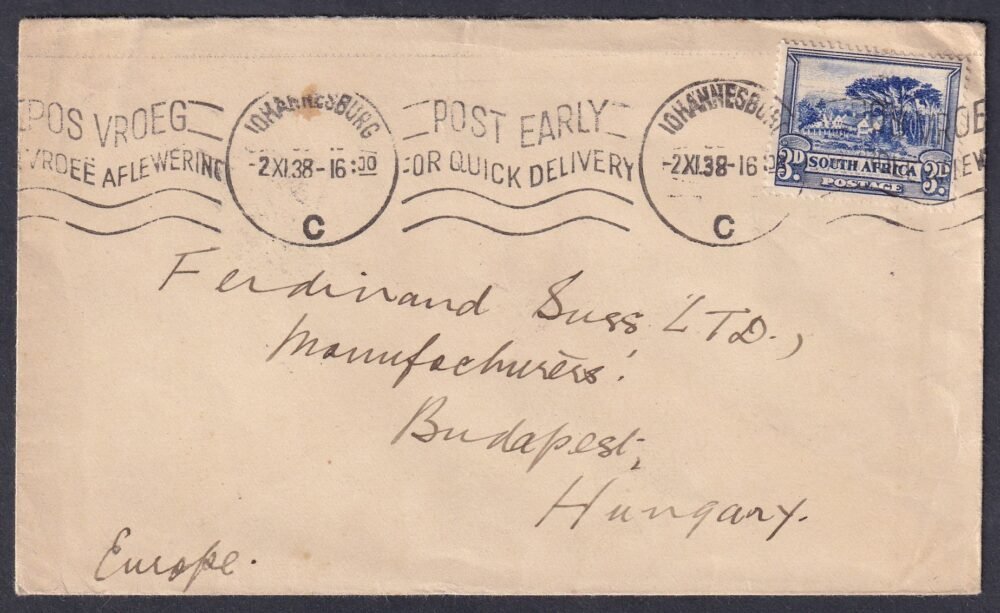 POS VROEG
VROEË AFLEWERING
JOHANNESBURG
-2XI.38-16:00
C
POST EARLY
FOR QUICK DELIVERY
JOHANNESBURG
-2XI.38-16
C
3D. SOUTH AFRICA 3D.
POSTAGE
Ferdinand Suss LTD.,
Manufacturers.
Budapest,
Hungary.
Europe.